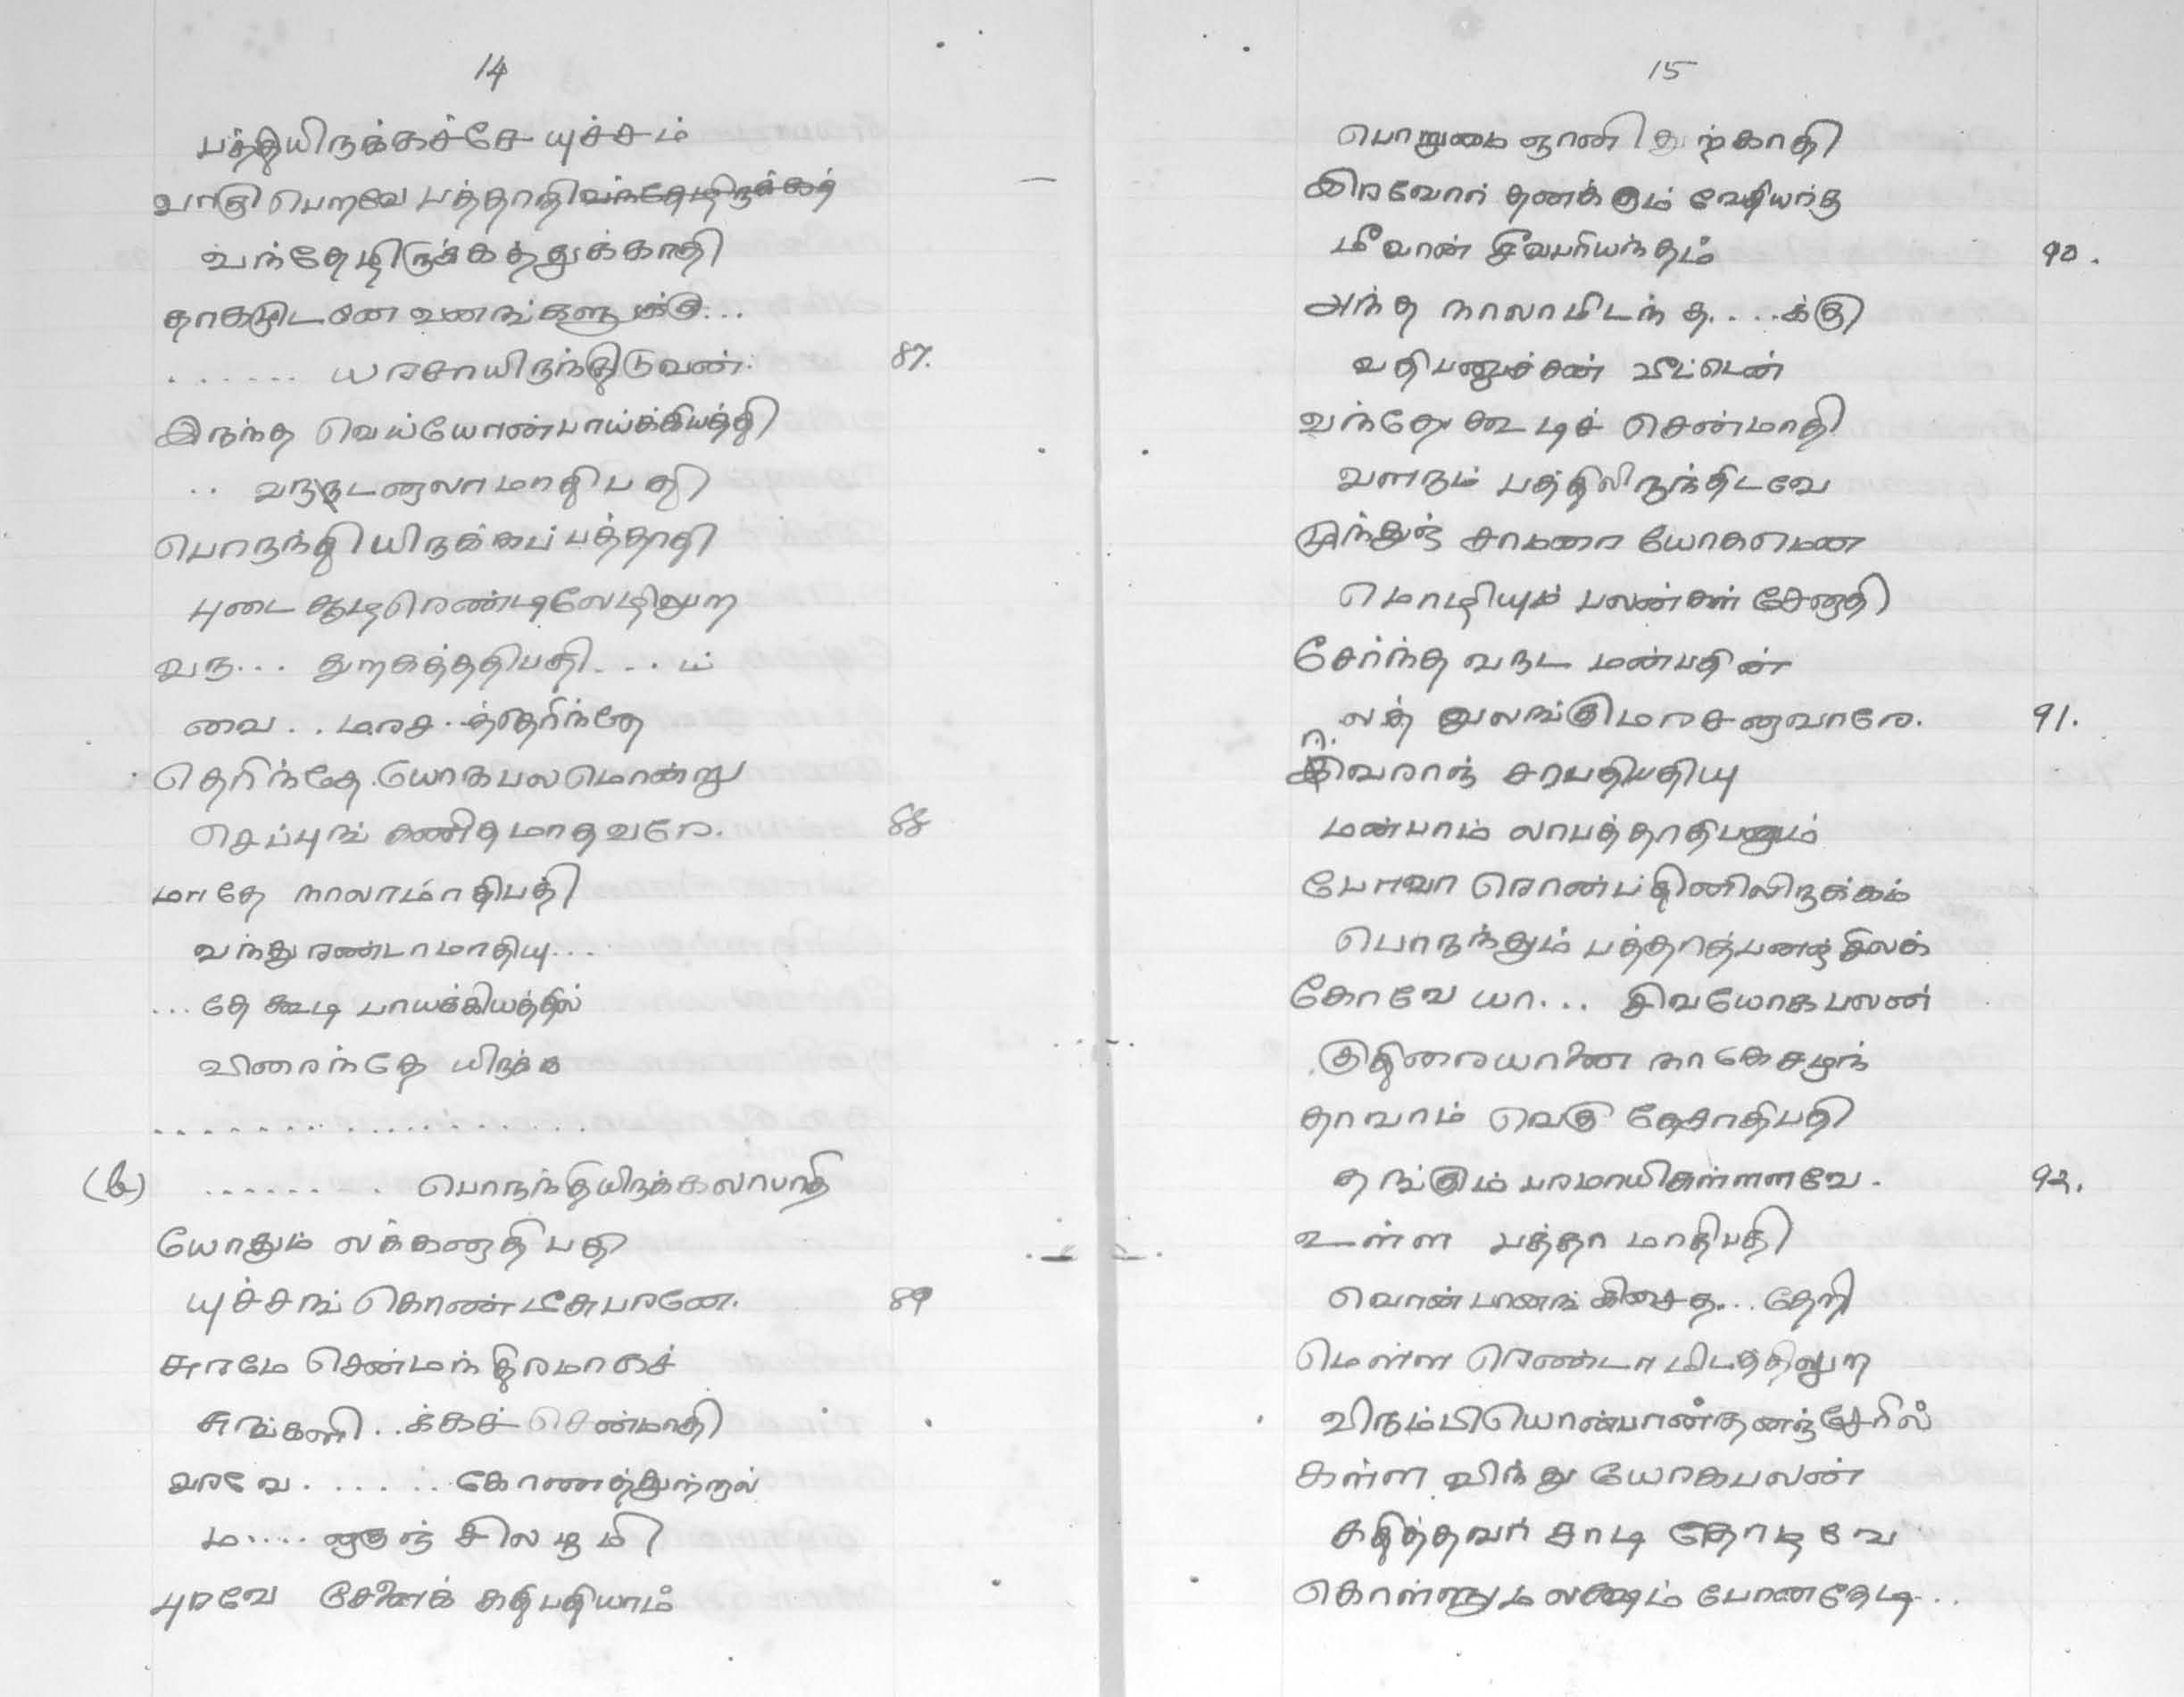 14
பத்தியிருக்கச்சே யுச்சம்
வாகு பெறவே பத்தாதி
வந்தேழிருக்கத்துக்காதி
தாகமுடனே வணங்களுக்கு...
...... யரசாயிருந்திடுவண். 87.
இருந்த வெய்யோண்பாய்க்கியத்தி
.. வருடனுலாமாதிபதி
பொருந்தியிருக்கப் பத்தாதி
புடைசூடிரெண்டிலேழிலுற
வரு... துறகத்ததிபதி....ம்
வை.. மரச..த்தெரிந்தே
தெரிந்தே யோகபலமொன்று
செப்புங் கணிதமாதவரே. 88
மாதே நாலாமாதிபதி
வந்து ரண்டாமாதியு...
...தே கூடி பாயக்கியத்தில்
விரைந்தே யிருக்க
....................
(b) ......... பொருந்தியிருக்கலாபாதி
யோதும் லக்கனாதிபதி
யுச்சங் கொண்டீசுபரனே. 89
சுரமே செண்மந் திரமாகச்
சுங்களி..க்கச் செண்மாதி
வரவே ...... கோணத்துற்றால்
ம.... னுகுந் சிலபூமி
புரவே சேனைக் கதிபதியாம்
15
பொறுமை ஞானி துற்காதி
இரவோர் தனக்கும் வேதியர்க்கு
மீவான் சீவபரியந்தம் 90.
அந்த நாலாமிடந் த....க்கு
வதிபனுச்சன் வீட்டென்
வந்தே கூடிச் செண்மாதி
வளரும் பத்திலிருந்திடவே
முந்துஞ் சாமரை யோகமென
மொழியும் பலண்கள் சேனாதி
சேர்ந்த வருட மண்பதின்
லத் துலங்குமரசனுவாரே. 91.
இவரான் சரபதியதியு
மண்பாம் லாபத்தாதிபனும்
யோவா ரொண்பதினிலிருக்கம்
பொருந்தும் பத்தாத்பணஞ் சிலக்
கோவே யா... சிவயோக பலண்
குதிரையானை நாகேசமுந்
தாவாம் வெகு தேசாதிபதி
தங்கும் பரமாயிசுள்ளளவே. 92.
உள்ள பத்தா மாதிபதி
வொண்பானங் கிசைத... தேறி
மெள்ள ரெண்டா மிடத்திலுற
விரும்பியொண்பாண்தனஞ்சேரில்
கள்ள விந்து யோகபலண்
கதித்தவர் சாடி தோடிவே
கொள்ளும் லஷம் போனதேடி...